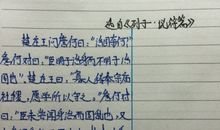 选自《列子·说符篇》
楚庄王问詹何曰:"治国奈何?"
詹何对曰:"臣明于治身而不明于治
国也"。楚庄王曰:"寡人得奉宗庙
社稷,愿学所以守之。"詹何对
曰:"臣未尝闻身治而国乱也,又